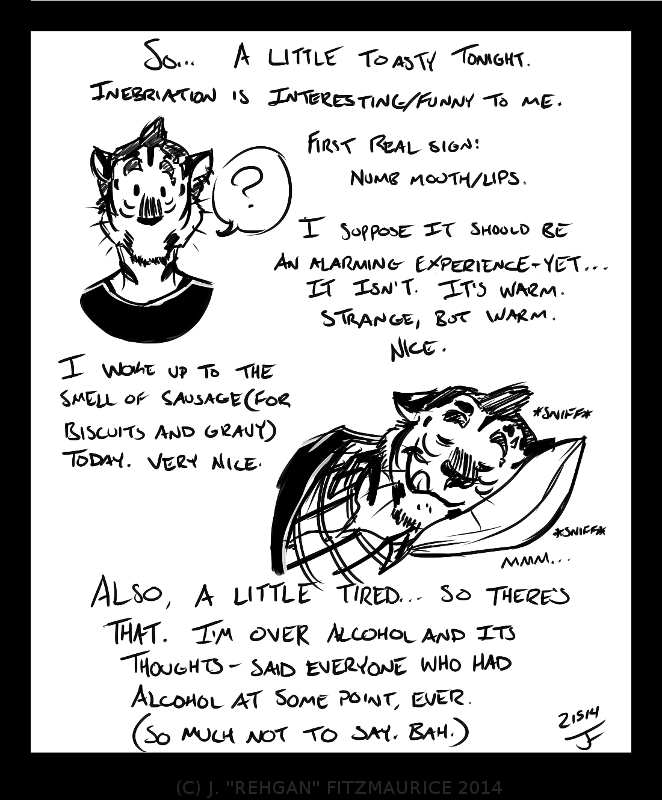 So... A LITTLE TOASTY TONIGHT.
INEBRIATION IS INTERESTING/FUNNY TO ME.
?
FIRST REAL SIGN:
NUMB MOUTH/LIPS.
I SUPPOSE IT SHOULD BE
AN ALARMING EXPERIENCE-YET...
IT ISN'T. IT'S WARM.
STRANGE, BUT WARM.
NICE.
I WOKE UP TO THE
SMELL OF SAUSAGE(FOR
BISCUITS AND GRAVY)
TODAY. VERY NICE.
*SNIFF*
*SNIFF*
MMM...
ALSO, A LITTLE TIRED... SO THERE'S
THAT. I'M OVER ALCOHOL AND ITS
THOUGHTS- SAID EVERYONE WHO HAD
ALCOHOL AT SOME POINT, EVER.
(SO MUCH NOT TO SAY. BAH.)
21514
JF
(C) J. "REHGAN" FITZMAURICE 2014